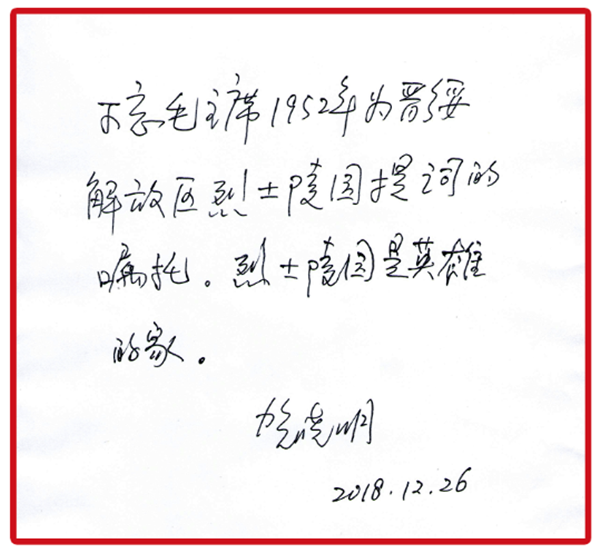 不忘毛主席1952年为晋绥
解放区烈士陵园提词的
嘱托。烈士陵园是英雄
的家。
贺晓明
2018.12.26